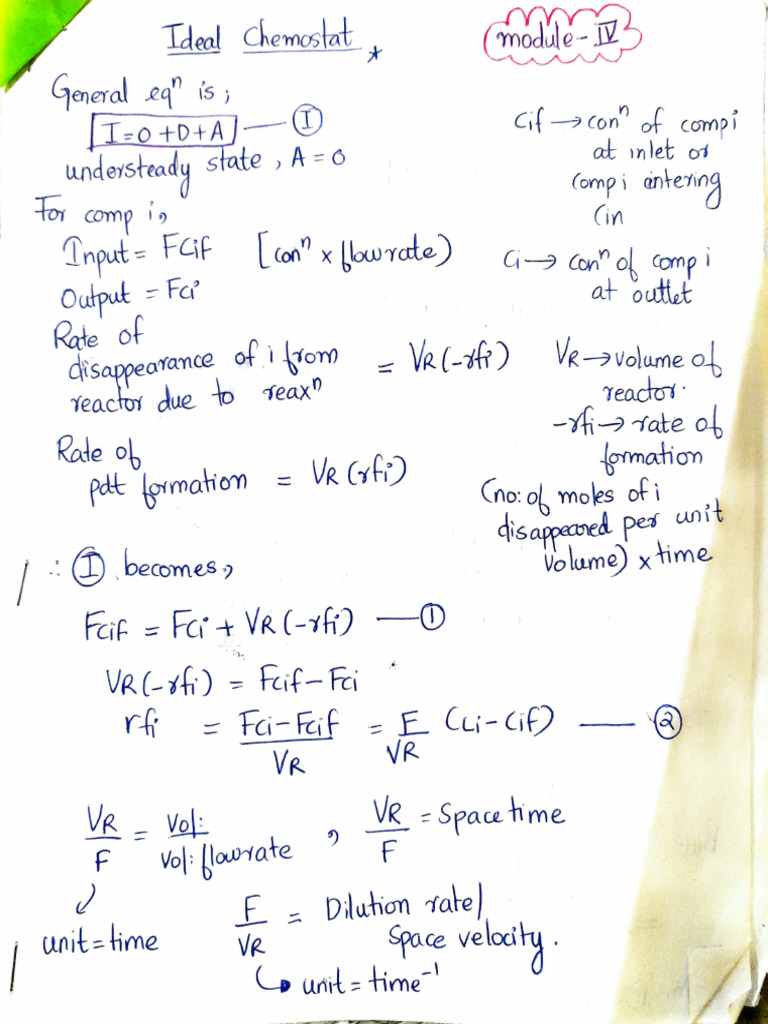 Ideal Chemostat *
module - IV
General eqⁿ is;
I = O + D + A — Ⓘ
understeady state, A = 0
For comp i,
Input = FCif [conⁿ x flowrate)
Output = Fci
Rate of
disappearance of i from
reactor due to reaxⁿ = VR (-rfi)
Rate of
pdt formation = VR (rfi)
Cif → conⁿ of comp i
at inlet or
comp i entering
Cin
Ci → conⁿ of comp i
at outlet
VR → volume of
reactor.
-rfi → rate of
formation
(no: of moles of i
disappeared per unit
volume) x time
∴ Ⓘ becomes,
Fcif = Fci + VR (-rfi) — ①
VR (-rfi) = Fcif - Fci
rfi = Fci - Fcif / VR = F / VR (Ci - Cif) — ②
VR / F = Vol: / Vol: flowrate , VR / F = Space time
unit = time
F / VR = Dilution rate /
Space velocity.
↳ unit = time⁻¹